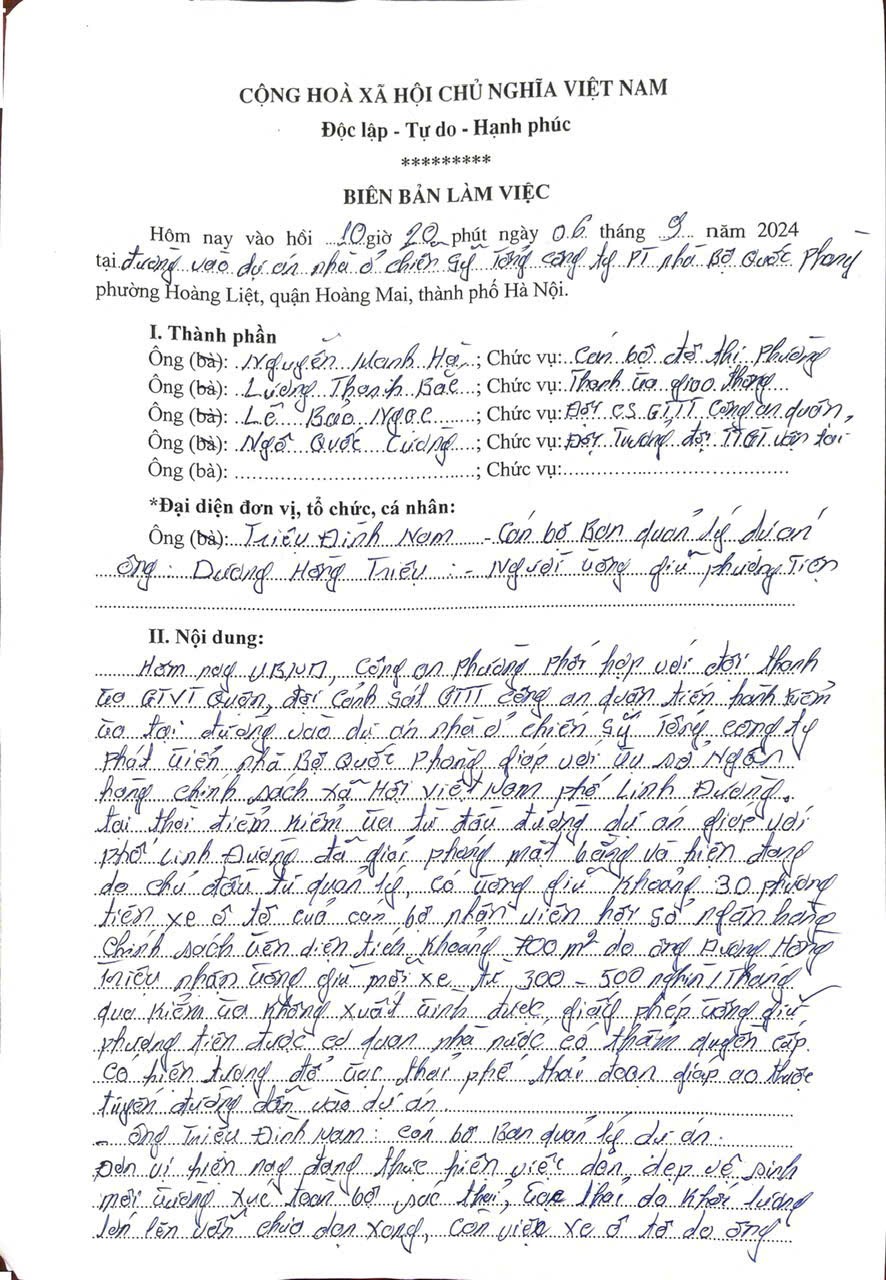 CỘNG HOÀ XÃ HỘI CHỦ NGHĨA VIỆT NAM
Độc lập - Tự do - Hạnh phúc
*********
BIÊN BẢN LÀM VIỆC
Hôm nay vào hồi 10 giờ 20 phút ngày 06 tháng 9 năm 2024
tại đường vào dự án nhà ở chiến sỹ Tổng công ty PT nhà Bộ Quốc Phòng
phường Hoàng Liệt, quận Hoàng Mai, thành phố Hà Nội.
I. Thành phần
Ông (bà): Nguyễn Mạnh Hà; Chức vụ: Cán bộ đô thị Phường
Ông (bà): Lương Thanh Bắc; Chức vụ: Thanh tra giao thông
Ông (bà): Lê Bảo Ngọc; Chức vụ: Đội CS GTTT Công an quận,
Ông (bà): Ngô Quốc Cường; Chức vụ: Đội Trưởng đội TTGT vận tải
Ông (bà): ; Chức vụ:
*Đại diện đơn vị, tổ chức, cá nhân:
Ông (bà): Triệu Đình Nam - Cán bộ Ban quản lý dự án
ông: Dương Hồng Triệu: - Người trông giữ phương tiện
II. Nội dung:
Hôm nay UBND, Công an phường phối hợp với đội thanh
tra GTVT Quận, đội Cảnh sát GTTT công an quận tiến hành kiểm
tra tại đường vào dự án nhà ở chiến sỹ Tổng công ty
phát triển nhà Bộ Quốc Phòng giáp với trụ sở Ngân
hàng chính sách xã Hội việt Nam phố Linh Đường.
tại thời điểm kiểm tra từ đầu đường dự án giáp với
phố Linh Đường đã giải phóng mặt bằng và hiện đang
do chủ đầu tư quản lý, có trông giữ khoảng 30 phương
tiện xe ô tô của cán bộ nhân viên hội sở ngân hàng
chính sách trên diện tích khoảng 700 m² do ông Dương Hồng
Triệu nhận trông giữ mỗi xe từ 300 - 500 nghìn / Tháng
qua kiểm tra không xuất trình được giấy phép trông giữ
phương tiện được cơ quan nhà nước có thẩm quyền cấp.
Có hiện tượng đổ rác thải phế thải đoạn giáp ao thuộc
tuyến đường dẫn vào dự án.
- ông Triệu Đình Nam: cán bộ Ban quản lý dự án.
Đơn vị hiện nay đang thực hiện việc dọn dẹp vệ sinh
môi trường xúc toàn bộ rác thải, do khối lượng
lớn lên vẫn chưa dọn xong, còn việc xe ô tô do ông